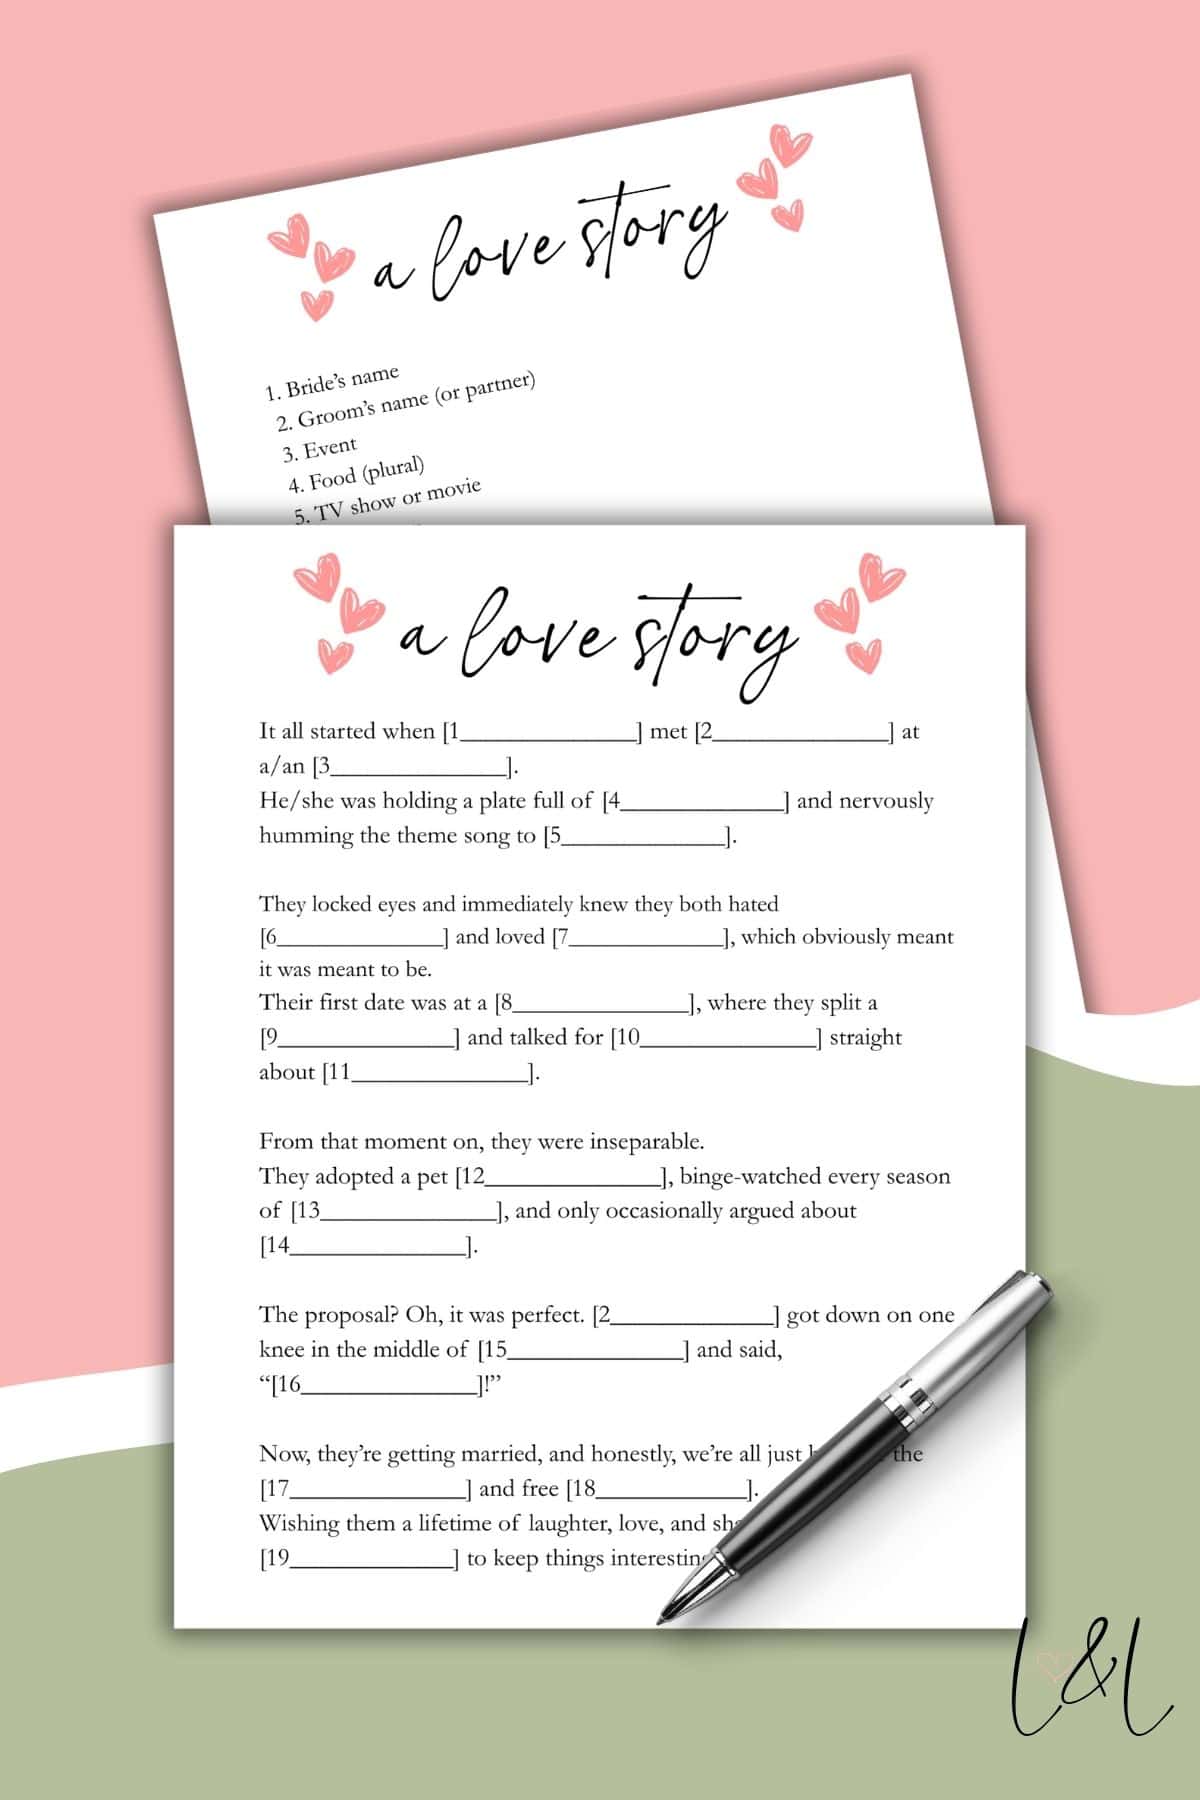 a love story
1. Bride's name
2. Groom's name (or partner)
3. Event
4. Food (plural)
5. TV show or movie
a love story
It all started when [1_______________] met [2_______________] at
a/an [3_______________].
He/she was holding a plate full of [4______________] and nervously
humming the theme song to [5______________].
They locked eyes and immediately knew they both hated
[6______________] and loved [7_____________], which obviously meant
it was meant to be.
Their first date was at a [8_______________], where they split a
[9_______________] and talked for [10_______________] straight
about [11_______________].
From that moment on, they were inseparable.
They adopted a pet [12_______________], binge-watched every season
of [13_______________], and only occasionally argued about
[14_______________].
The proposal? Oh, it was perfect. [2______________] got down on one
knee in the middle of [15_______________] and said,
“[16_______________]!”
Now, they’re getting married, and honestly, we’re all just the
[17_______________] and free [18_____________].
Wishing them a lifetime of laughter, love, and
[19______________] to keep things
L&L